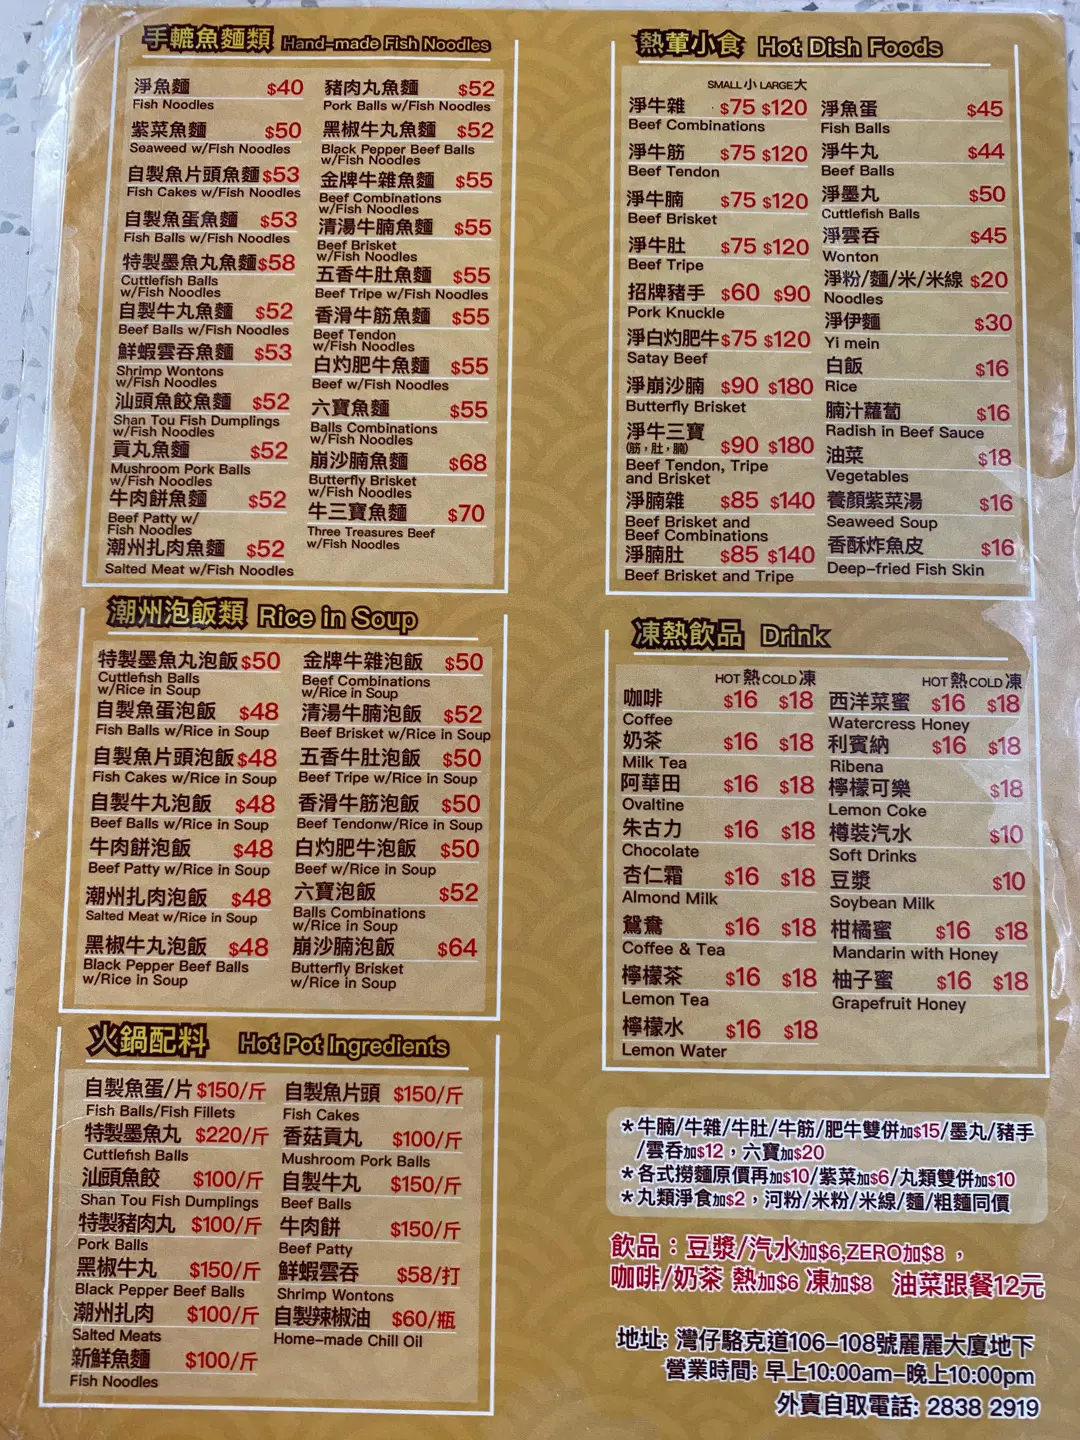 手轆魚麵類 Hand-made Fish Noodles
淨魚麵 $40
Fish Noodles
紫菜魚麵 $50
Seaweed w/Fish Noodles
自製魚片頭魚麵 $53
Fish Cakes w/Fish Noodles
自製魚蛋魚麵 $53
Fish Balls w/Fish Noodles
特製墨魚丸魚麵 $58
Cuttlefish Balls
w/Fish Noodles
自製牛丸魚麵 $52
Beef Balls w/Fish Noodles
鮮蝦雲吞魚麵 $53
Shrimp Wontons
w/Fish Noodles
汕頭魚餃魚麵 $52
Shan Tou Fish Dumplings
w/Fish Noodles
貢丸魚麵 $52
Mushroom Pork Balls
w/Fish Noodles
牛肉餅魚麵 $52
Beef Patty w/
Fish Noodles
潮州扎肉魚麵 $52
Salted Meat w/Fish Noodles
豬肉丸魚麵 $52
Pork Balls w/Fish Noodles
黑椒牛丸魚麵 $52
Black Pepper Beef Balls
w/Fish Noodles
金牌牛雜魚麵 $55
Beef Combinations
w/Fish Noodles
清湯牛腩魚麵 $55
Beef Brisket
w/Fish Noodles
五香牛肚魚麵 $55
Beef Tripe w/Fish Noodles
香滑牛筋魚麵 $55
Beef Tendon
w/Fish Noodles
白灼肥牛魚麵 $55
Beef w/Fish Noodles
六寶魚麵 $55
Balls Combinations
w/Fish Noodles
崩沙腩魚麵 $68
Butterfly Brisket
w/Fish Noodles
牛三寶魚麵 $70
Three Treasures Beef
w/Fish Noodles
潮州泡飯類 Rice in Soup
特製墨魚丸泡飯 $50
Cuttlefish Balls
w/Rice in Soup
自製魚蛋泡飯 $48
Fish Balls w/Rice in Soup
自製魚片頭泡飯 $48
Fish Cakes w/Rice in Soup
自製牛丸泡飯 $48
Beef Balls w/Rice in Soup
牛肉餅泡飯 $48
Beef Patty w/Rice in Soup
潮州扎肉泡飯 $48
Salted Meat w/Rice in Soup
黑椒牛丸泡飯 $48
Black Pepper Beef Balls
w/Rice in Soup
金牌牛雜泡飯 $50
Beef Combinations
w/Rice in Soup
清湯牛腩泡飯 $52
Beef Brisket w/Rice in Soup
五香牛肚泡飯 $50
Beef Tripe w/Rice in Soup
香滑牛筋泡飯 $50
Beef Tendonw/Rice in Soup
白灼肥牛泡飯 $50
Beef w/Rice in Soup
六寶泡飯 $52
Balls Combinations
w/Rice in Soup
崩沙腩泡飯 $64
Butterfly Brisket
w/Rice in Soup
火鍋配料 Hot Pot Ingredients
自製魚蛋/片 $150/斤
Fish Balls/Fish Fillets
特製墨魚丸 $220/斤
Cuttlefish Balls
汕頭魚餃 $100/斤
Shan Tou Fish Dumplings
特製豬肉丸 $100/斤
Pork Balls
黑椒牛丸 $150/斤
Black Pepper Beef Balls
潮州扎肉 $100/斤
Salted Meats
新鮮魚麵 $100/斤
Fish Noodles
自製魚片頭 $150/斤
Fish Cakes
香菇貢丸 $100/斤
Mushroom Pork Balls
自製牛丸 $150/斤
Beef Balls
牛肉餅 $150/斤
Beef Patty
鮮蝦雲吞 $58/打
Shrimp Wontons
自製辣椒油 $60/瓶
Home-made Chill Oil
熱葷小食 Hot Dish Foods
SMALL 小 LARGE 大
淨牛雜 $75 $120
Beef Combinations
淨牛筋 $75 $120
Beef Tendon
淨牛腩 $75 $120
Beef Brisket
淨牛肚 $75 $120
Beef Tripe
招牌豬手 $60 $90
Pork Knuckle
淨白灼肥牛 $75 $120
Satay Beef
淨崩沙腩 $90 $180
Butterfly Brisket
淨牛三寶
(筋,肚,腩) $90 $180
Beef Tendon, Tripe
and Brisket
淨腩雜 $85 $140
Beef Brisket and
Beef Combinations
淨腩肚 $85 $140
Beef Brisket and Tripe
淨魚蛋 $45
Fish Balls
淨牛丸 $44
Beef Balls
淨墨丸 $50
Cuttlefish Balls
淨雲吞 $45
Wonton
淨粉/麵/米/米線 $20
Noodles
淨伊麵 $30
Yi mein
白飯 $16
Rice
腩汁蘿蔔 $16
Radish in Beef Sauce
油菜 $18
Vegetables
養顏紫菜湯 $16
Seaweed Soup
香酥炸魚皮 $16
Deep-fried Fish Skin
凍熱飲品 Drink
HOT 熱 COLD 凍
咖啡 $16 $18
Coffee
奶茶 $16 $18
Milk Tea
阿華田 $16 $18
Ovaltine
朱古力 $16 $18
Chocolate
杏仁霜 $16 $18
Almond Milk
鴛鴦 $16 $18
Coffee & Tea
檸檬茶 $16 $18
Lemon Tea
檸檬水 $16 $18
Lemon Water
HOT 熱 COLD 凍
西洋菜蜜 $16 $18
Watercress Honey
利賓納 $16 $18
Ribena
檸檬可樂 $18
Lemon Coke
樽裝汽水 $10
Soft Drinks
豆漿 $10
Soybean Milk
柑橘蜜 $16 $18
Mandarin with Honey
柚子蜜 $16 $18
Grapefruit Honey
*牛腩/牛雜/牛肚/牛筋/肥牛雙併加$15/墨丸/豬手
/雲吞加$12,六寶加$20
*各式撈麵原價再加$10/紫菜加$6/丸類雙併加$10
*丸類淨食加$2,河粉/米粉/米線/麵/粗麵同價
飲品:豆漿/汽水加$6,ZERO加$8,
咖啡/奶茶 熱加$6 凍加$8 油菜跟餐12元
地址: 灣仔駱克道106-108號麗麗大廈地下
營業時間: 早上10:00am-晚上10:00pm
外賣自取電話: 2838 2919